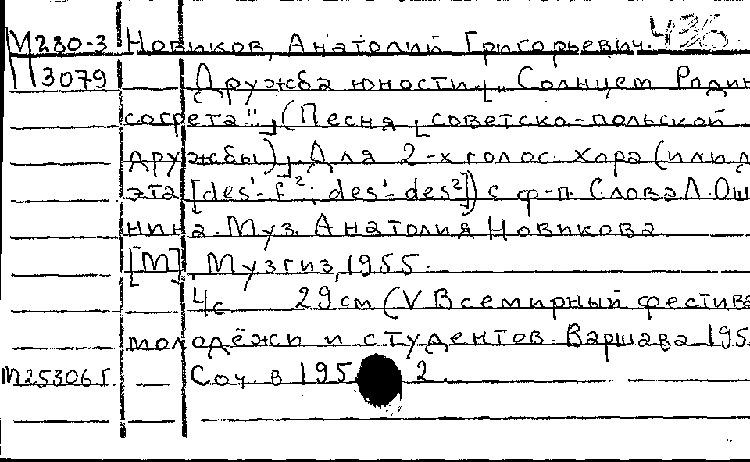 М280-3 Новиков, Анатолий Григорьевич. 436
П3079 Дружба юности. „Солнцем Родин
согрета", (Песня советско-польской
дружбы), Для 2-х голос. хора (или д
эта [des'-f²; des'-des²]) с ф-п. Слова Л. Ош
нина. Муз. Анатолия Новикова
[М], Музгиз, 1955.
4с 29см (V Всемирный фестива
молодёжи и студентов. Варшава 195
М25306г. Соч. в 195 2